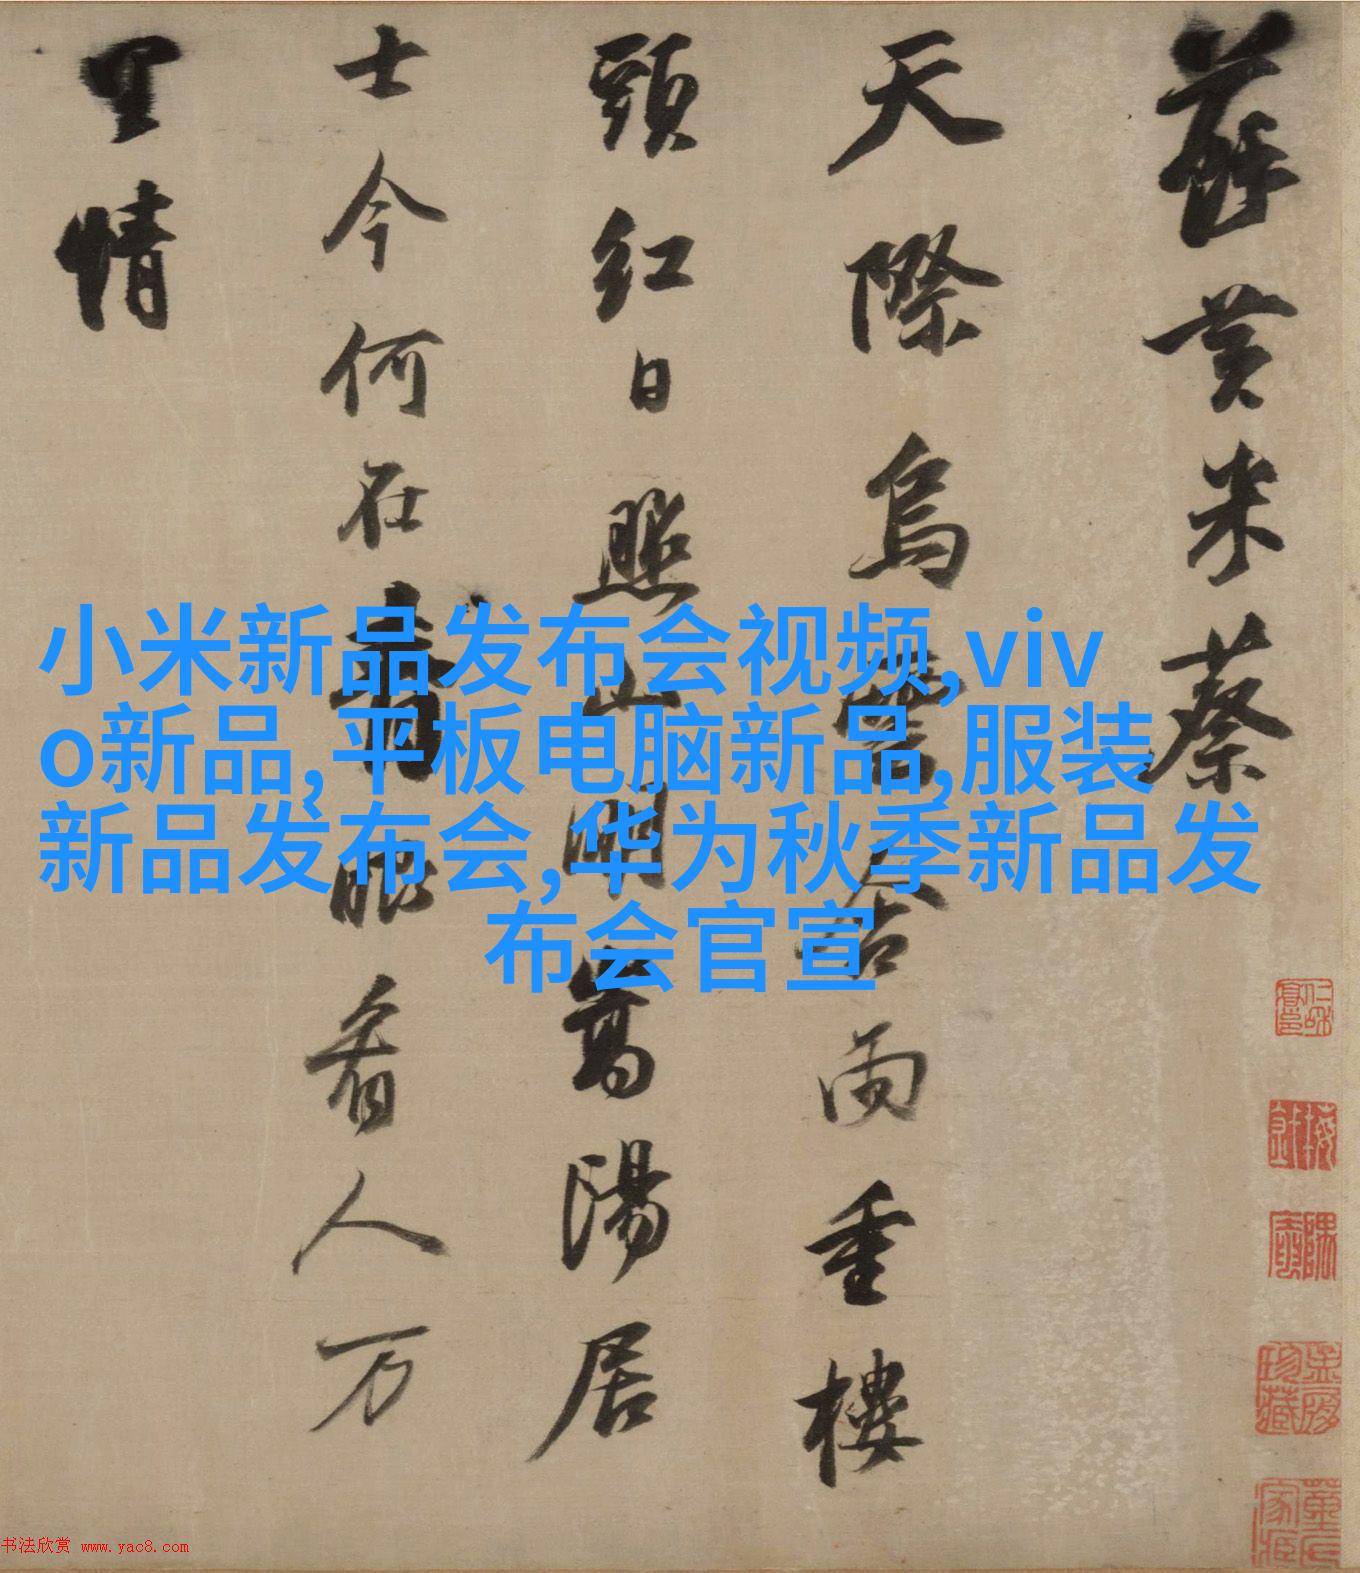 蘇黄米蔡
天際烏雲含雨重樓
頭紅日照山明嵩陽居
士今何在青眼看人万
里情
小米新品发布会视频,viv
o新品,平板电脑新品,服装
新品发布会,华为秋季新品发
布会官宣
书法欣赏 www.yac8.com